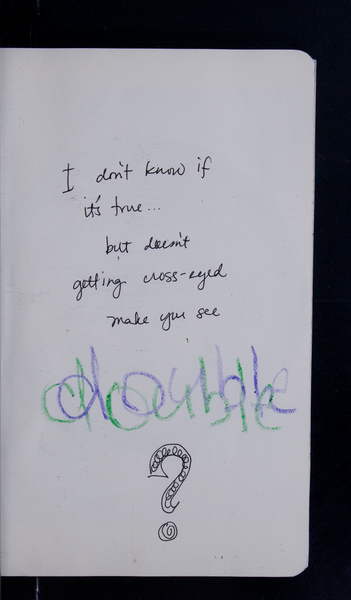 I don't know if
it's true...
but doesn't
getting cross-eyed
make you see
double
?